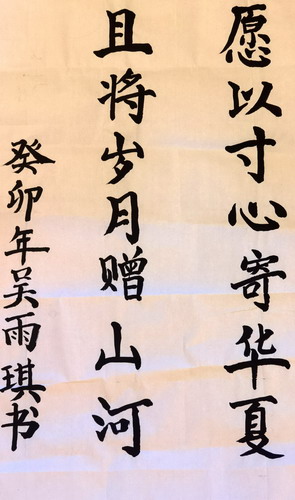 愿以寸心寄华夏
且将岁月赠山河
癸卯年吴雨琪书